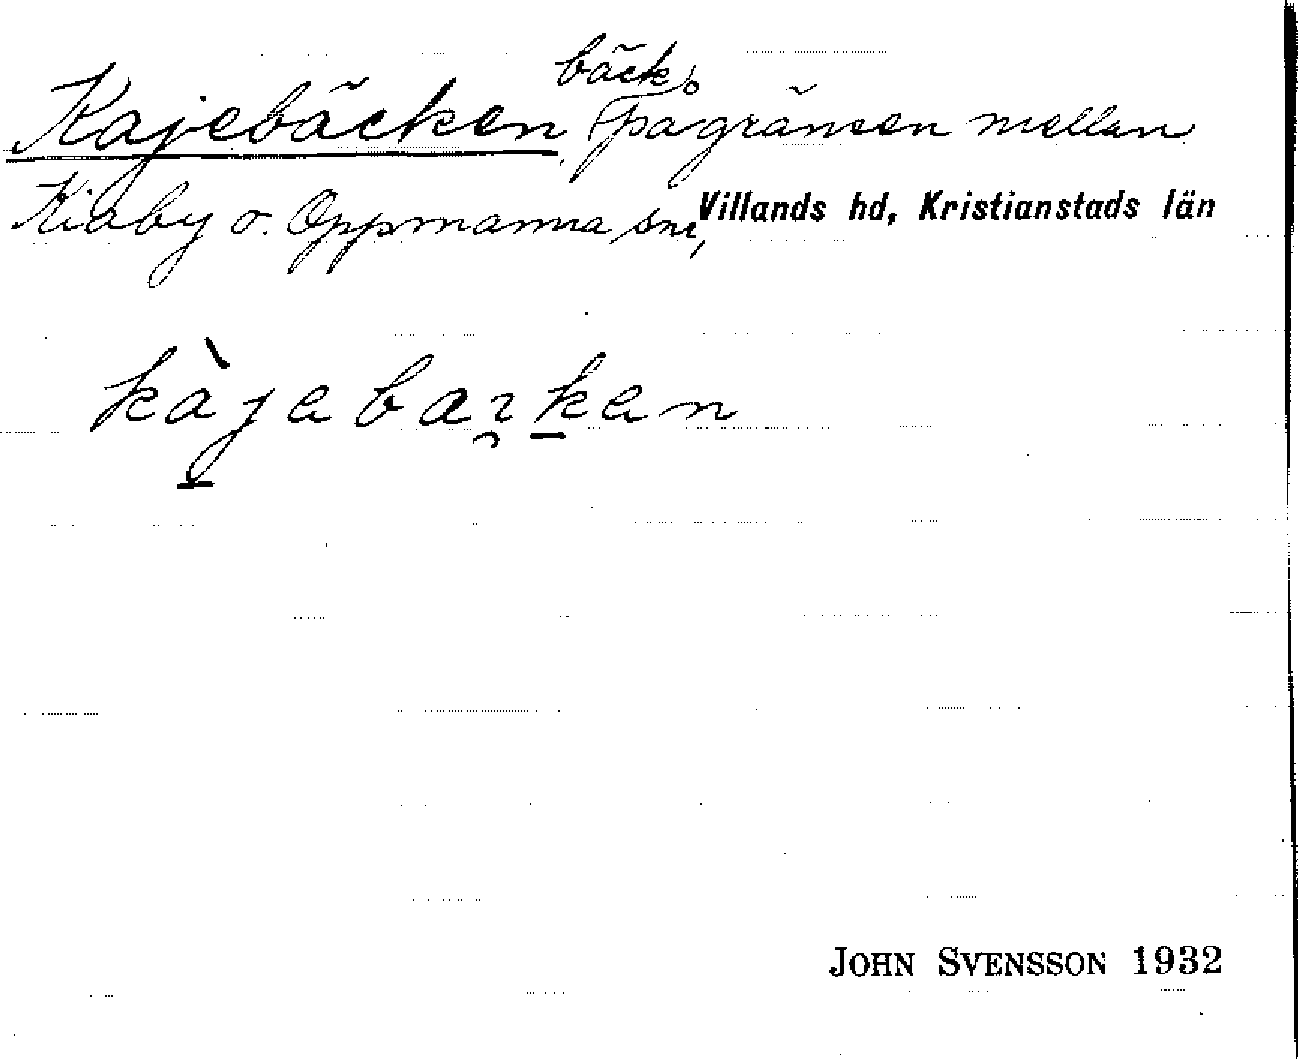 Kajebäcken bäck på gränsen mellan
Kiaby o. Oppmanna snr, Villands hd, Kristianstads län
kàjabaꝛken
JOHN SVENSSON 1932